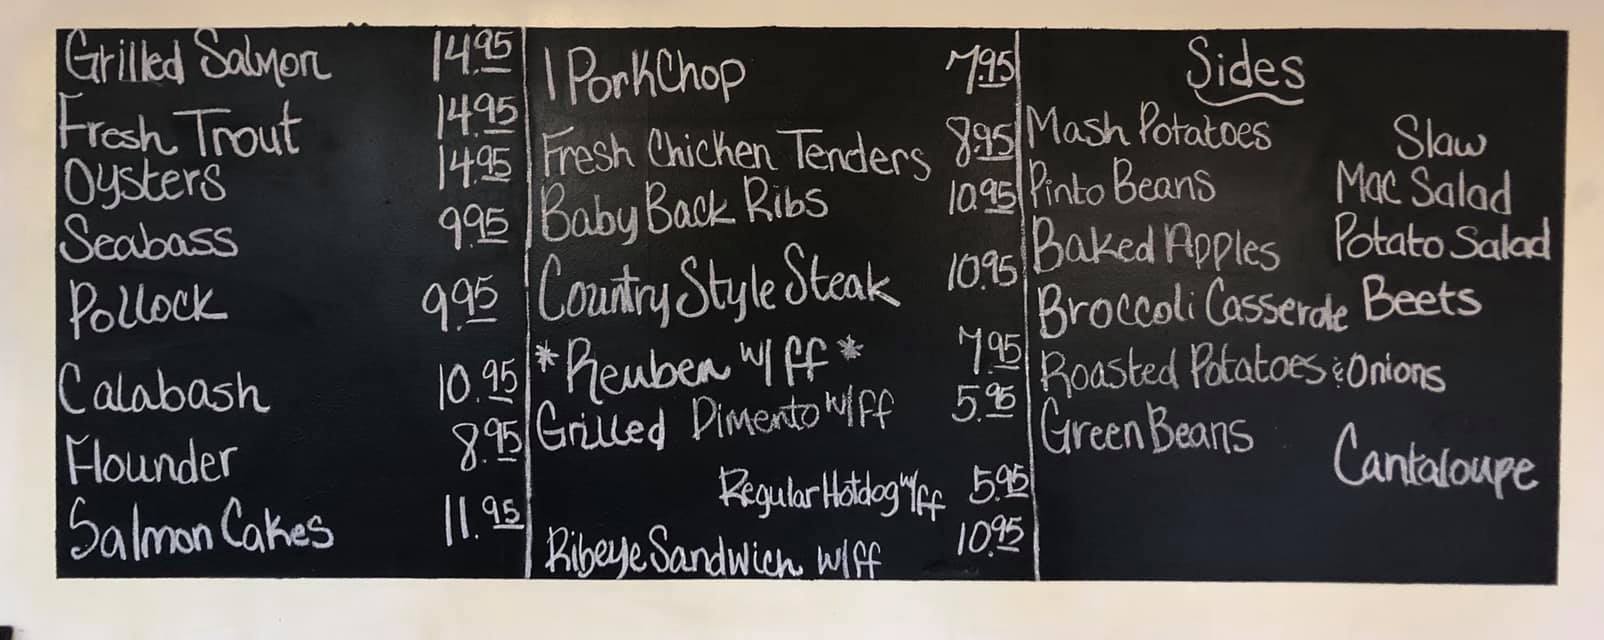 Grilled Salmon 14.95
Fresh Trout 14.95
Oysters 14.95
Seabass 9.95
Pollock 9.95
Calabash 10.95
Flounder 8.95
Salmon Cakes 11.95
1 PorkChop 7.95
Fresh Chicken Tenders 8.95
Baby Back Ribs 10.95
Country Style Steak 10.95
*Reuben w/ff* 7.95
Grilled Pimento w/ff 5.95
Regular Hotdog w/ff 5.95
Ribeye Sandwich w/ff 10.95
Sides
Mash Potatoes
Pinto Beans
Baked Apples
Broccoli Casserole
Roasted Potatoes & Onions
Green Beans
Slaw
Mac Salad
Potato Salad
Beets
Cantaloupe